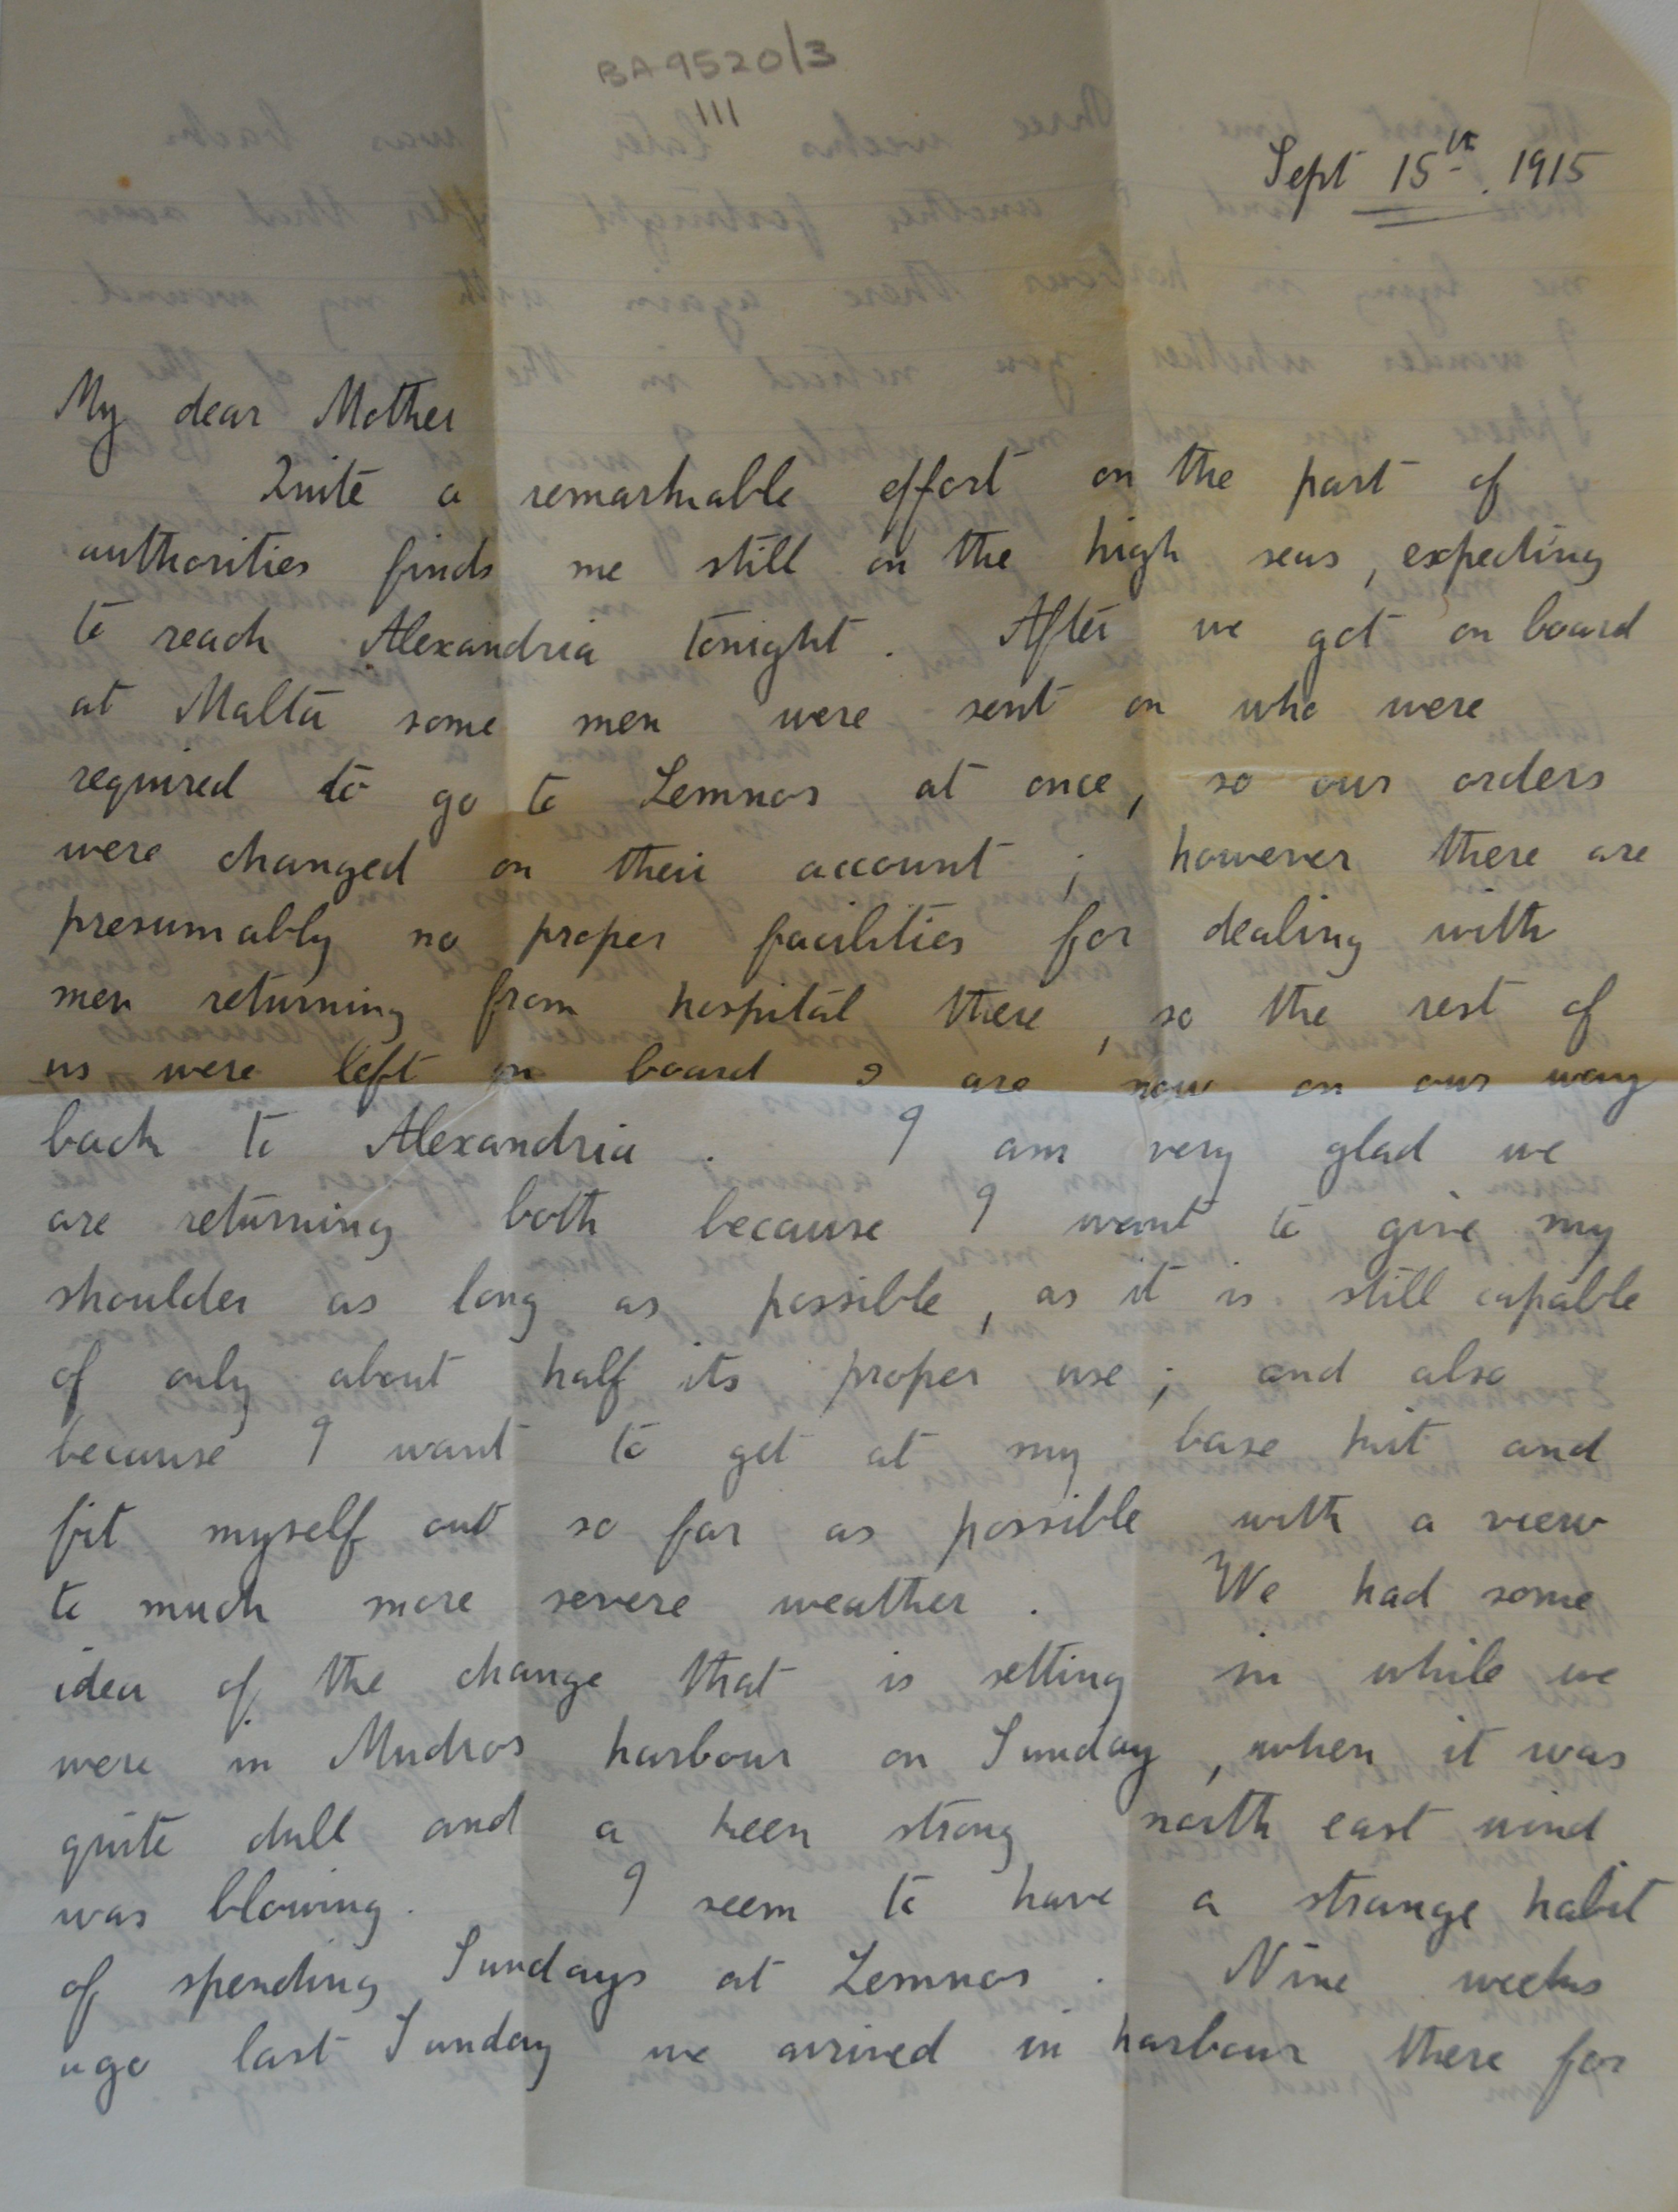 BA 9520/3
III
Sept 15th. 1915
My dear Mother
Quite a remarkable effort on the part of
authorities finds me still on the high seas, expecting
to reach Alexandria tonight. After we got on board
at Malta some men were sent on who were
required to go to Lemnos at once, so our orders
were changed on their account; however there are
presumably no proper facilities for dealing with
men returning from hospital there, so the rest of
us were left on board & are now on our way
back to Alexandria. I am very glad we
are returning both because I want to give my
shoulder as long as possible, as it is still capable
of only about half its proper use; and also
because I want to get at my base kit and
fit myself out so far as possible with a view
to much more severe weather. We had some
idea of the change that is setting in while we
were in Mudros harbour on Sunday, when it was
quite dull and a keen strong north east wind
was blowing. I seem to have a strange habit
of spending Sundays at Lemnos. Nine weeks
ago last Sunday we arrived in harbour there for